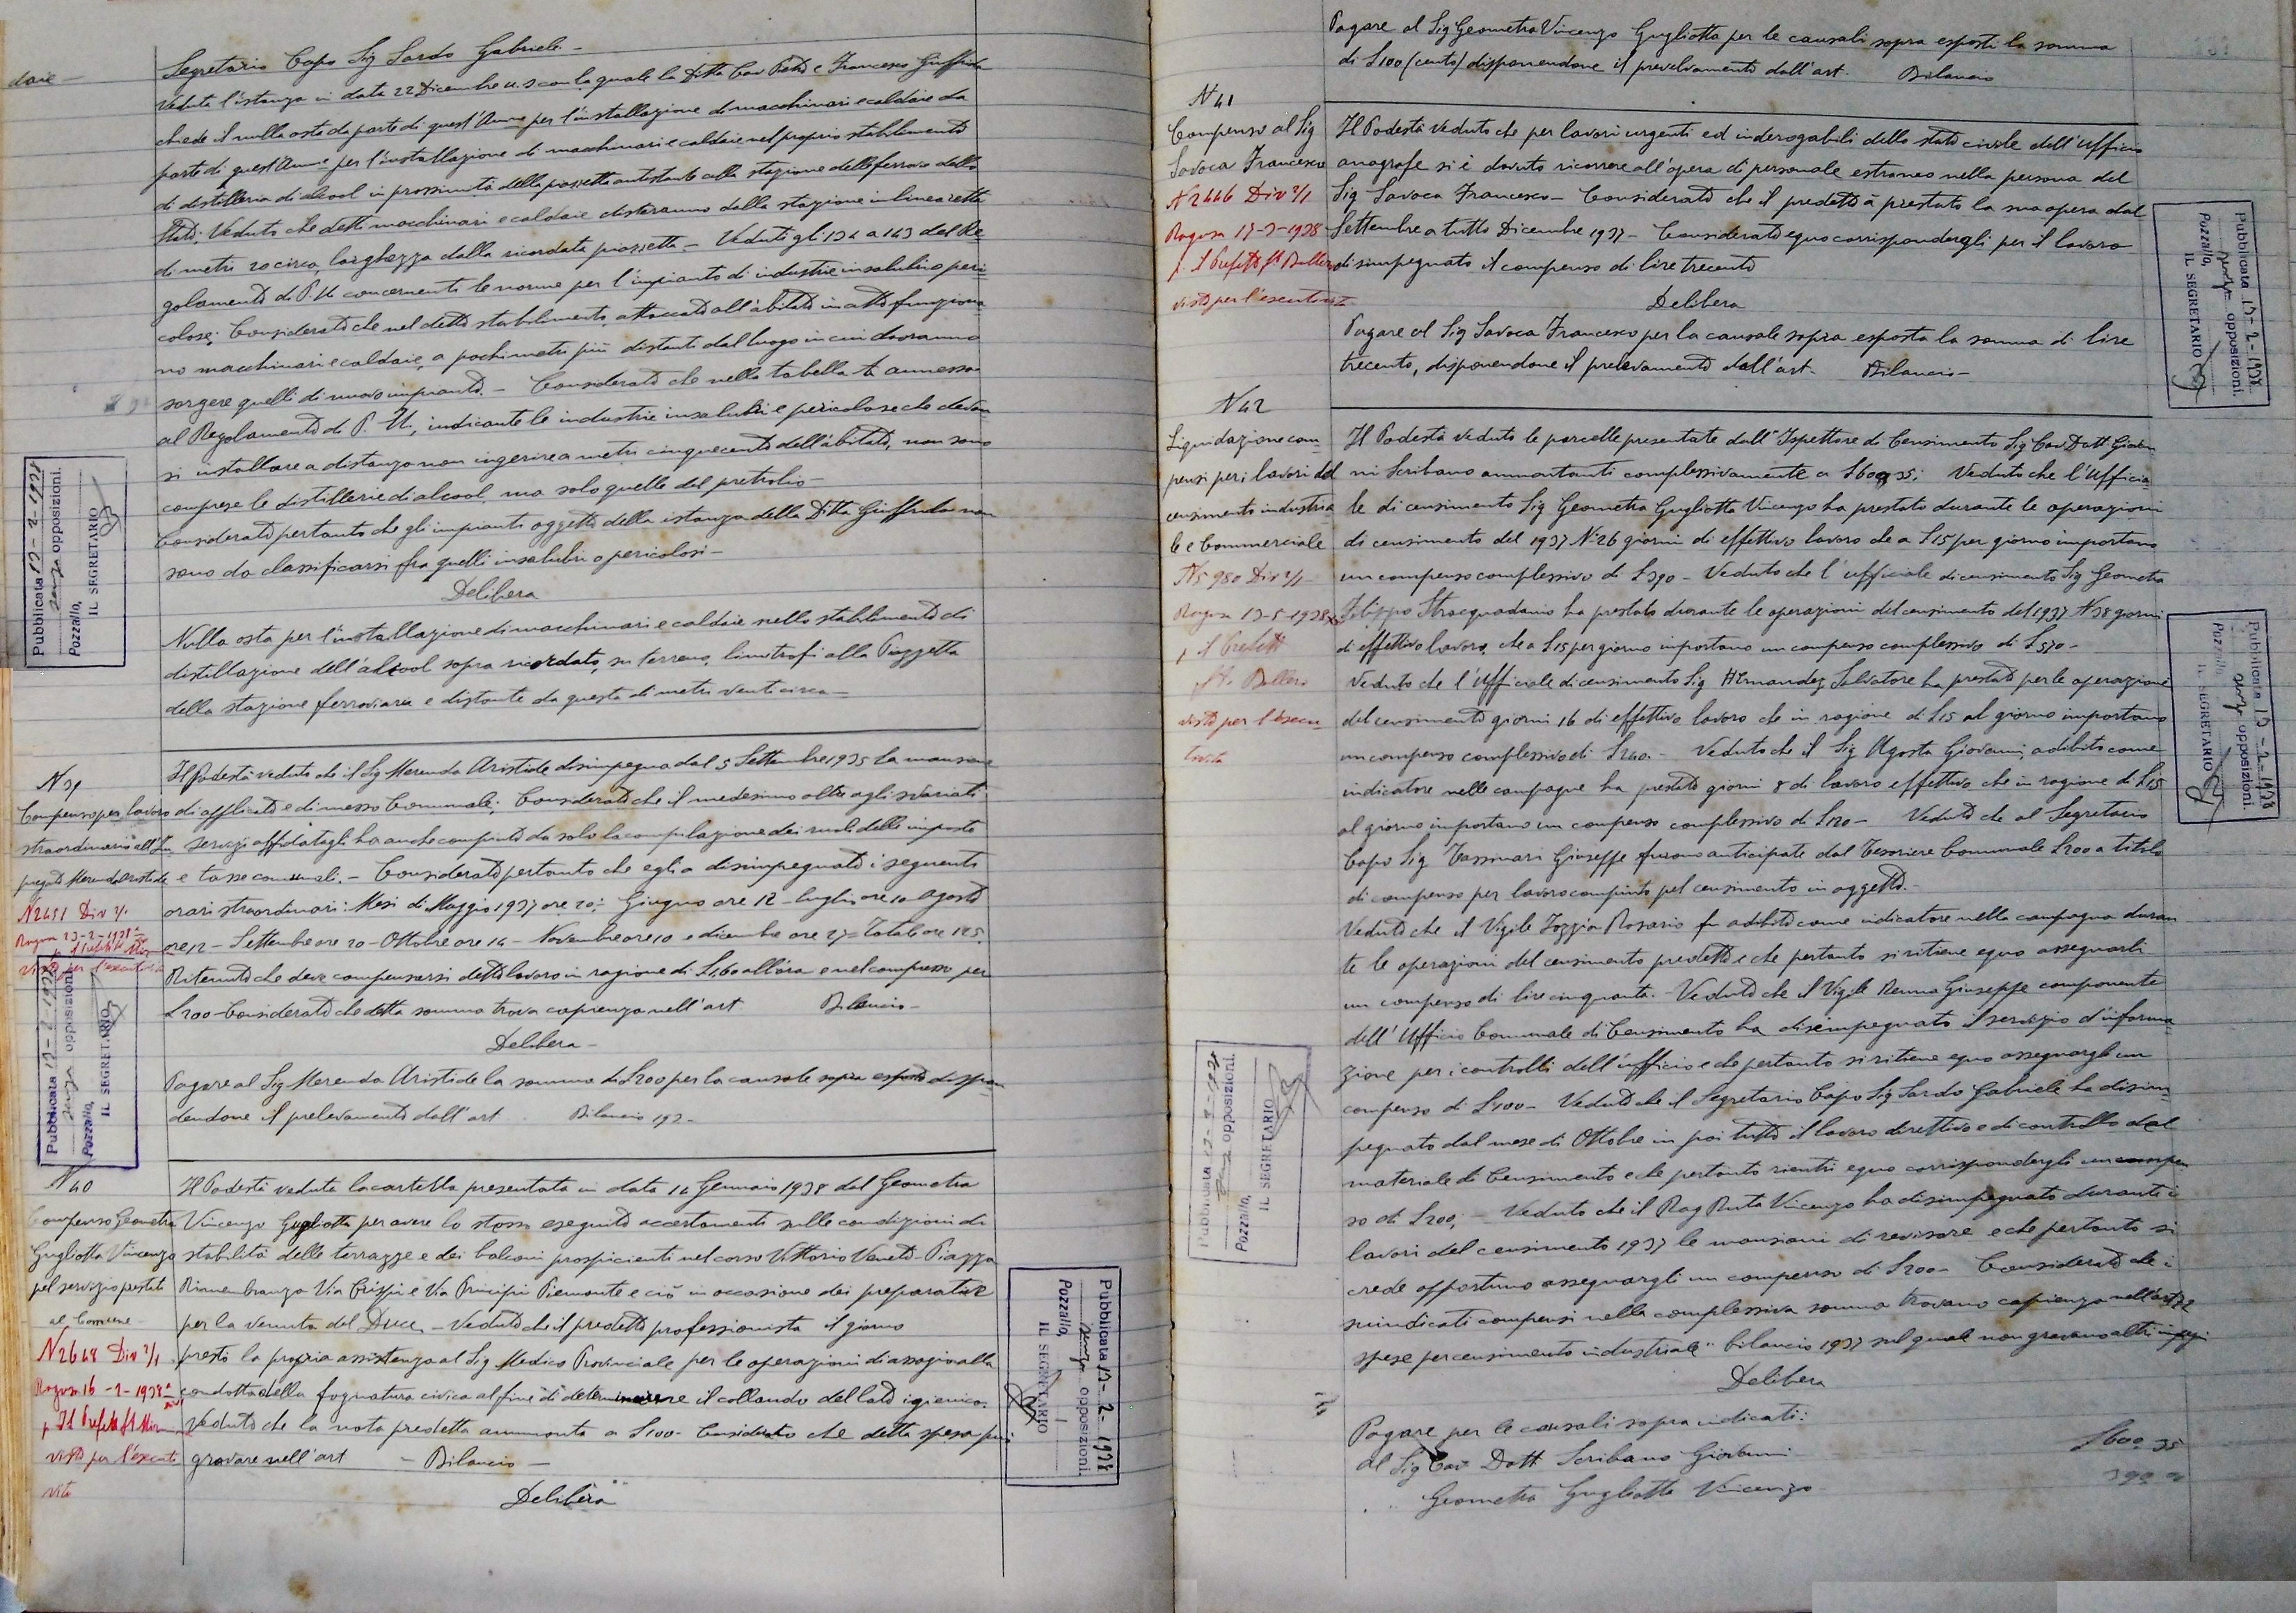 daie —
Segretario Capo Sig Sardo Gabriele —
Veduta l'istanza in data 22 Dicembre u.s con la quale la Ditta Cav Pietro e Francesco Giuffrida
chiede il nulla osta da parte di quest' Amm per l'installazione di macchinari e caldaie da
parte di quest'Amm per l'installazione di macchinari e caldaie nel proprio stabilimento
di distilleria di alcool in prossimità della piazzetta antistante alla stazione delle ferrovie dello
Stato; Veduto che detti macchinari e caldaie disteranno dalla stazione in linea retta
di metri 20 circa, larghezza della ricordata piazzetta — Veduti gli 134 a 143 del Re
golamento di P. U. concernenti le norme per l'impianto di industrie insalubri o peri
colose; Considerato che nel detto stabilimento, attaccato all'abitato in atto funziona
no macchinari e caldaie, a pochi metri più distanti dal luogo in cui dovranno
sorgere quelli di nuovo impianto. — Considerato che nella tabella annessa
al Regolamento di P. U., indicante le industrie insalubri e pericolose che devon
si installare a distanza non inferire a metri cinquecento dell'abitato, non sono
comprese le distillerie di alcool, ma solo quelle del pretrolio —
Considerato pertanto che gli impianti oggetto della istanza della Ditta Giuffrida non
sono da classificarsi fra quelli insalubri o pericolosi —
Delibera
Nulla osta per l'installazione di macchinari e caldaie nello stabilimento di
distillazione dell'alcool sopra ricordato, su terreno, limitrofi alla Piazzetta
della stazione ferroviaria e distante da questa di metri venti circa —
Pubblicata 13-2-1938
senza opposizioni.
Pozzallo,
IL SEGRETARIO
N 39
Compenso per lavoro
straordinario all'Im
piegato Merenda Aristide
N 2451 Div 2/1
Ragusa 23-2-1938
Visto per l'esecutività
Il Podestà veduto che il Sig Merenda Aristide disimpegna dal 5 Settembre 1935 la mansione
di applicato e di messo Comunale; Considerato che il medesimo oltre agli svariati
servizi affidatagli ha anche compiuto da solo la compilazione dei ruoli delle imposte
e tasse comunali. — Considerato pertanto che egli a disimpegnato i seguenti
orari straordinari: Mesi di Maggio 1937 ore 20; Giugno ore 12 - luglio ore 10 Agosto
ore 12 - Settembre ore 20 - Ottobre ore 14 - Novembre ore 10 e dicembre ore 27 = Totale ore 125.
Ritenuto che deve compensarsi detto lavoro in ragione di L 1,60 all'ora e nel compresso per
L 200 - Considerato che detta somma trova caprenza nell'art Bilancio —
Delibera —
Pagare al Sig Merenda Aristide la somma di L 200 per la causale sopra esposta dispo
dendone il prelevamento dall'art Bilancio 193 —
Pubblicata 13-2-1938
senza opposizioni.
Pozzallo,
IL SEGRETARIO
N 40
Compenso Geometra
Gugliotta Vincenzo
pel servizio prestato
al Comune
N 2648 Div 2/1
Ragusa 16 - 2 - 1938
p Il Prefetto
visto per l'esecuti
vità
Il Podestà veduta la cartella presentata in data 14 Gennaio 1938 dal Geometra
Vincenzo Gugliotta per avere lo stesso eseguito accertamenti sulle condizioni di
stabilità delle terrazze e dei balconi prospicienti nel corso Vittorio Veneto - Piazza
Rimembranza Via Crispi e Via Principi Piemonte e ciò in occasione dei preparative
per la venuta del Duce, - Veduto che il predetto professionista il giorno
prestò la propria assistenza al Sig Medico Provinciale per le operazioni di assagio alla
condotta della fognatura civica al fine di determinare il collaudo del lato igienico.
Veduto che la nota predetta ammonta a L 100 - Considerato che detta spesa può
gravare nell'art - Bilancio —
Delibera
Pubblicata 13-2-1938
senza opposizioni.
Pozzallo,
IL SEGRETARIO
Pagare al Sig Geometra Vincenzo Gugliotta per le causali sopra esposti la somma
di L 100 (cento) disponendone il prevelvamento dall'art. Bilancio
N 41
Compenso al Sig
Savoca Francesco
N 2446 Div 2/1
Ragusa 17-3-1938
p. Il Prefetto ft Ballero
visto per l'esecutività
Il Podestà Veduto che per lavori urgenti ed inderogabili dello stato civile dell'Ufficio
anagrafe si è dovuto ricorrere all'opera di personale estraneo nella persona del
Sig Savoca Francesco — Considerato che il predetto à prestato la sua opera dal
Settembre a tutto Dicembre 1937 — Considerato equo corrispondergli per il lavoro
disimpegnato il compenso di lire trecento
Delibera
Pagare al Sig Savoca Francesco per la causale sopra esposta la somma di lire
trecento, disponendone il prelevamento dall'art. Bilancio —
Pubblicata 13-2-1938
senza opposizioni.
Pozzallo,
IL SEGRETARIO
N 42
Liquidazione com
pensi per i lavori del
censimento industria
le e Commerciale
N 5980 Div 2/1
Ragusa 13-5-1938
p il Prefetto
ft. Ballero
visto per l'esecu
tività
Il Podestà Veduto le parcelle presentate dall'Ispettore di Censimento Sig Cav Dott Giovan
ni Scribano ammontanti complessivamente a L 600,35; Veduto che l'Ufficia
le di censimento Sig Geometra Gugliotta Vincenzo ha prestato durante le operazioni
di censimento del 1937 N 26 giorni di effettivo lavoro che a L 15 per giorno importano
un compenso complessivo di L 390 — Veduto che l'ufficiale di censimento Sig Geometra
Filippo Stracquadanio ha prestato durante le operazioni del censimento del 1937 N 38 giorni
di effettivo lavoro, che a L 15 per giorno importano un compenso complessivo di L 570 —
Veduto che l'Ufficiale di censimento Sig Hernandez Salvatore ha prestato per le operazione
del censimento giorni 16 di effettivo lavoro che in ragione di L 15 al giorno importano
un compenso complessivo di L 240. — Veduto che il Sig Agosta Giovanni, adibito come
indicatore nelle campagne ha prestato giorni 8 di lavoro effettivo che in ragione di L 15
al giorno importano un compenso complessivo di L 120 — Veduto che al Segretario
Capo Sig Tassinari Giuseppe furono anticipate dal Tesoriere Comunale L 200 a titolo
di compenso per lavoro compiuto pel censimento in oggetto. —
Veduto che il Vigile Iozzia Rosario fu adibito come indicatore nella campagna duran
te le operazioni del censimento predetto e che pertanto si ritiene equo assegnarli
un compenso di lire cinquanta. — Veduto che il Vigile Renna Giuseppe componente
dell'Ufficio Comunale di Censimento ha disimpegnato il servizio d'informa
zione per i controlli dell'ufficio e che pertanto si ritiene equo assegnargli un
compenso di L 100 — Veduto che il Segretario Capo Sig Sardo Gabriele ha disim
pegnato dal mese di Ottobre in poi tutto il lavoro direttivo e di controllo del
materiale di Censimento e che pertanto rientri equo corrispondergli un compen
so di L 200; — Veduto che il Rag Ruta Vincenzo ha disimpegnato durante i
lavori del censimento 1937 le mansioni di revisore e che pertanto si
crede opportuno assegnargli un compenso di L 200 — Considerato che i
suindicati compensi nella complessiva somma trovano capienza nell'art
spese per censimento industriale" bilancio 1937 sul quale non gravano altri impegni
Delibera
Pagare per le causali sopra indicati:
al Sig Cav Dott Scribano Giovanni L 600 35
" " Geometra Gugliotta Vincenzo 390
Pubblicata 13-2-1938
senza opposizioni.
Pozzallo,
IL SEGRETARIO
Pubblicata 13-2-1938
senza opposizioni.
Pozzallo,
IL SEGRETARIO